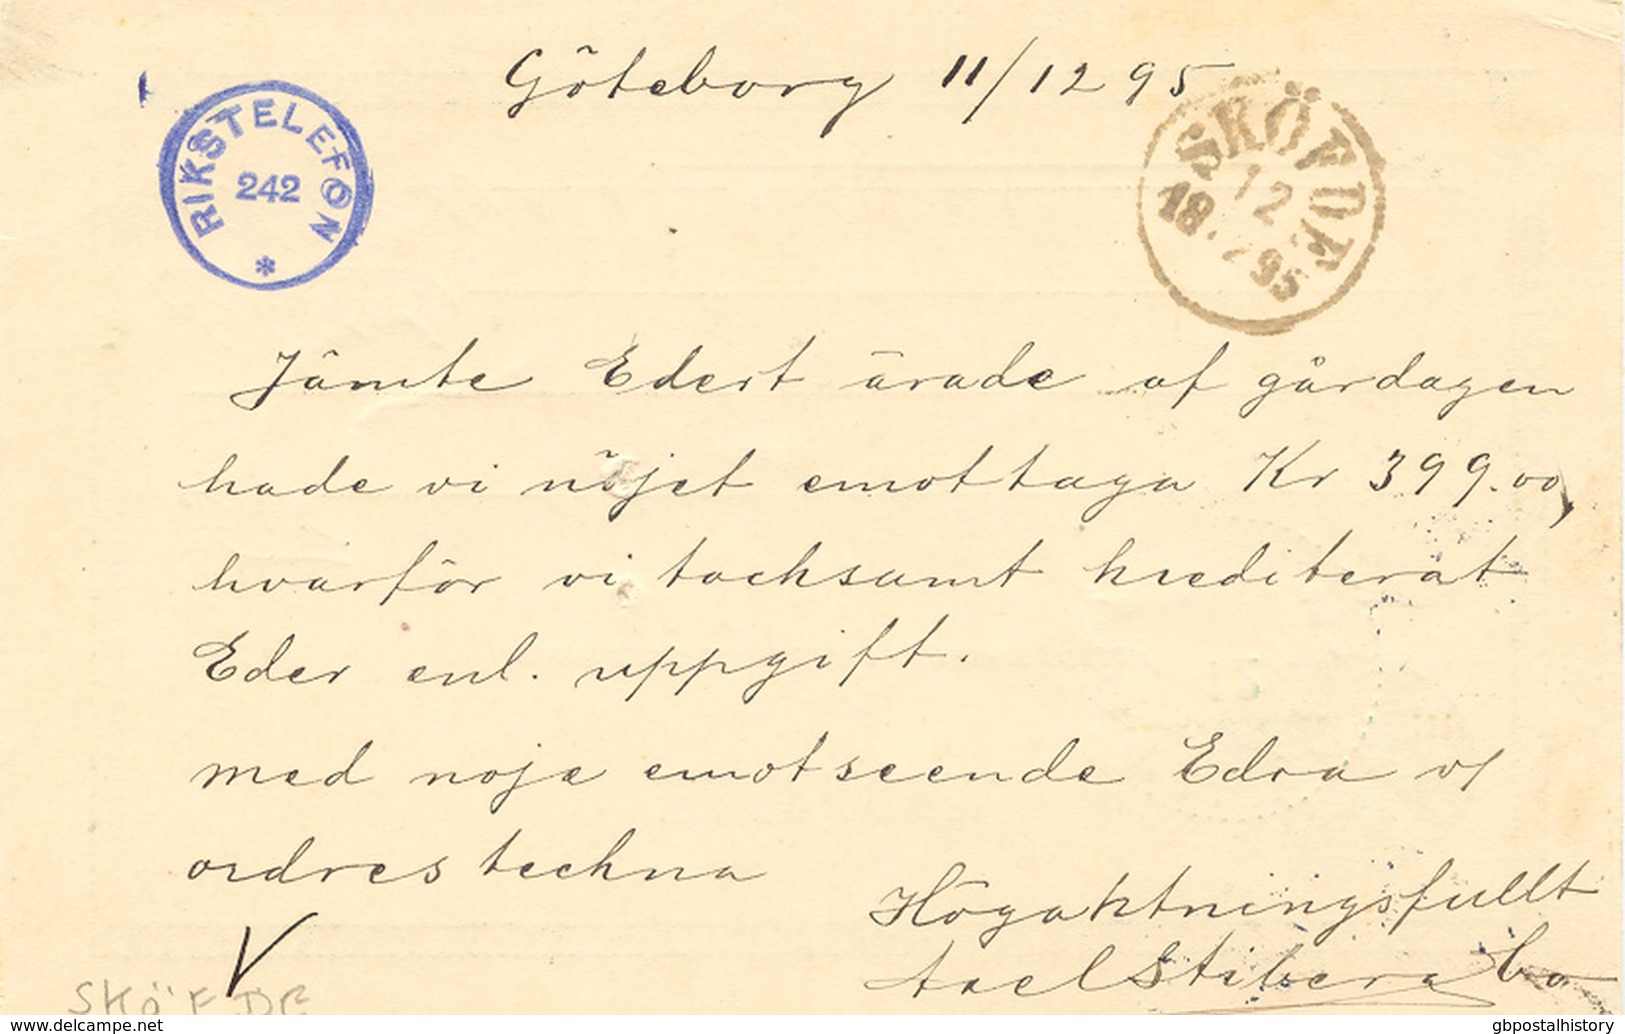 Göteborg 11/12 95
RIKSTELEFON
242
*
SKÖFDE
12
12
1895
Jämte Edert ärade af gårdagen
hade vi nöjet emottaga Kr 399.00,
hvarför vi tacksamt krediterat
Eder enl. uppgift.
Med nöje emotseende Edra v/
ordres teckna
Högaktningsfullt
Axel Stiberg & Co
SKÖFDE
www.delcampe.net
gbpostalhistory